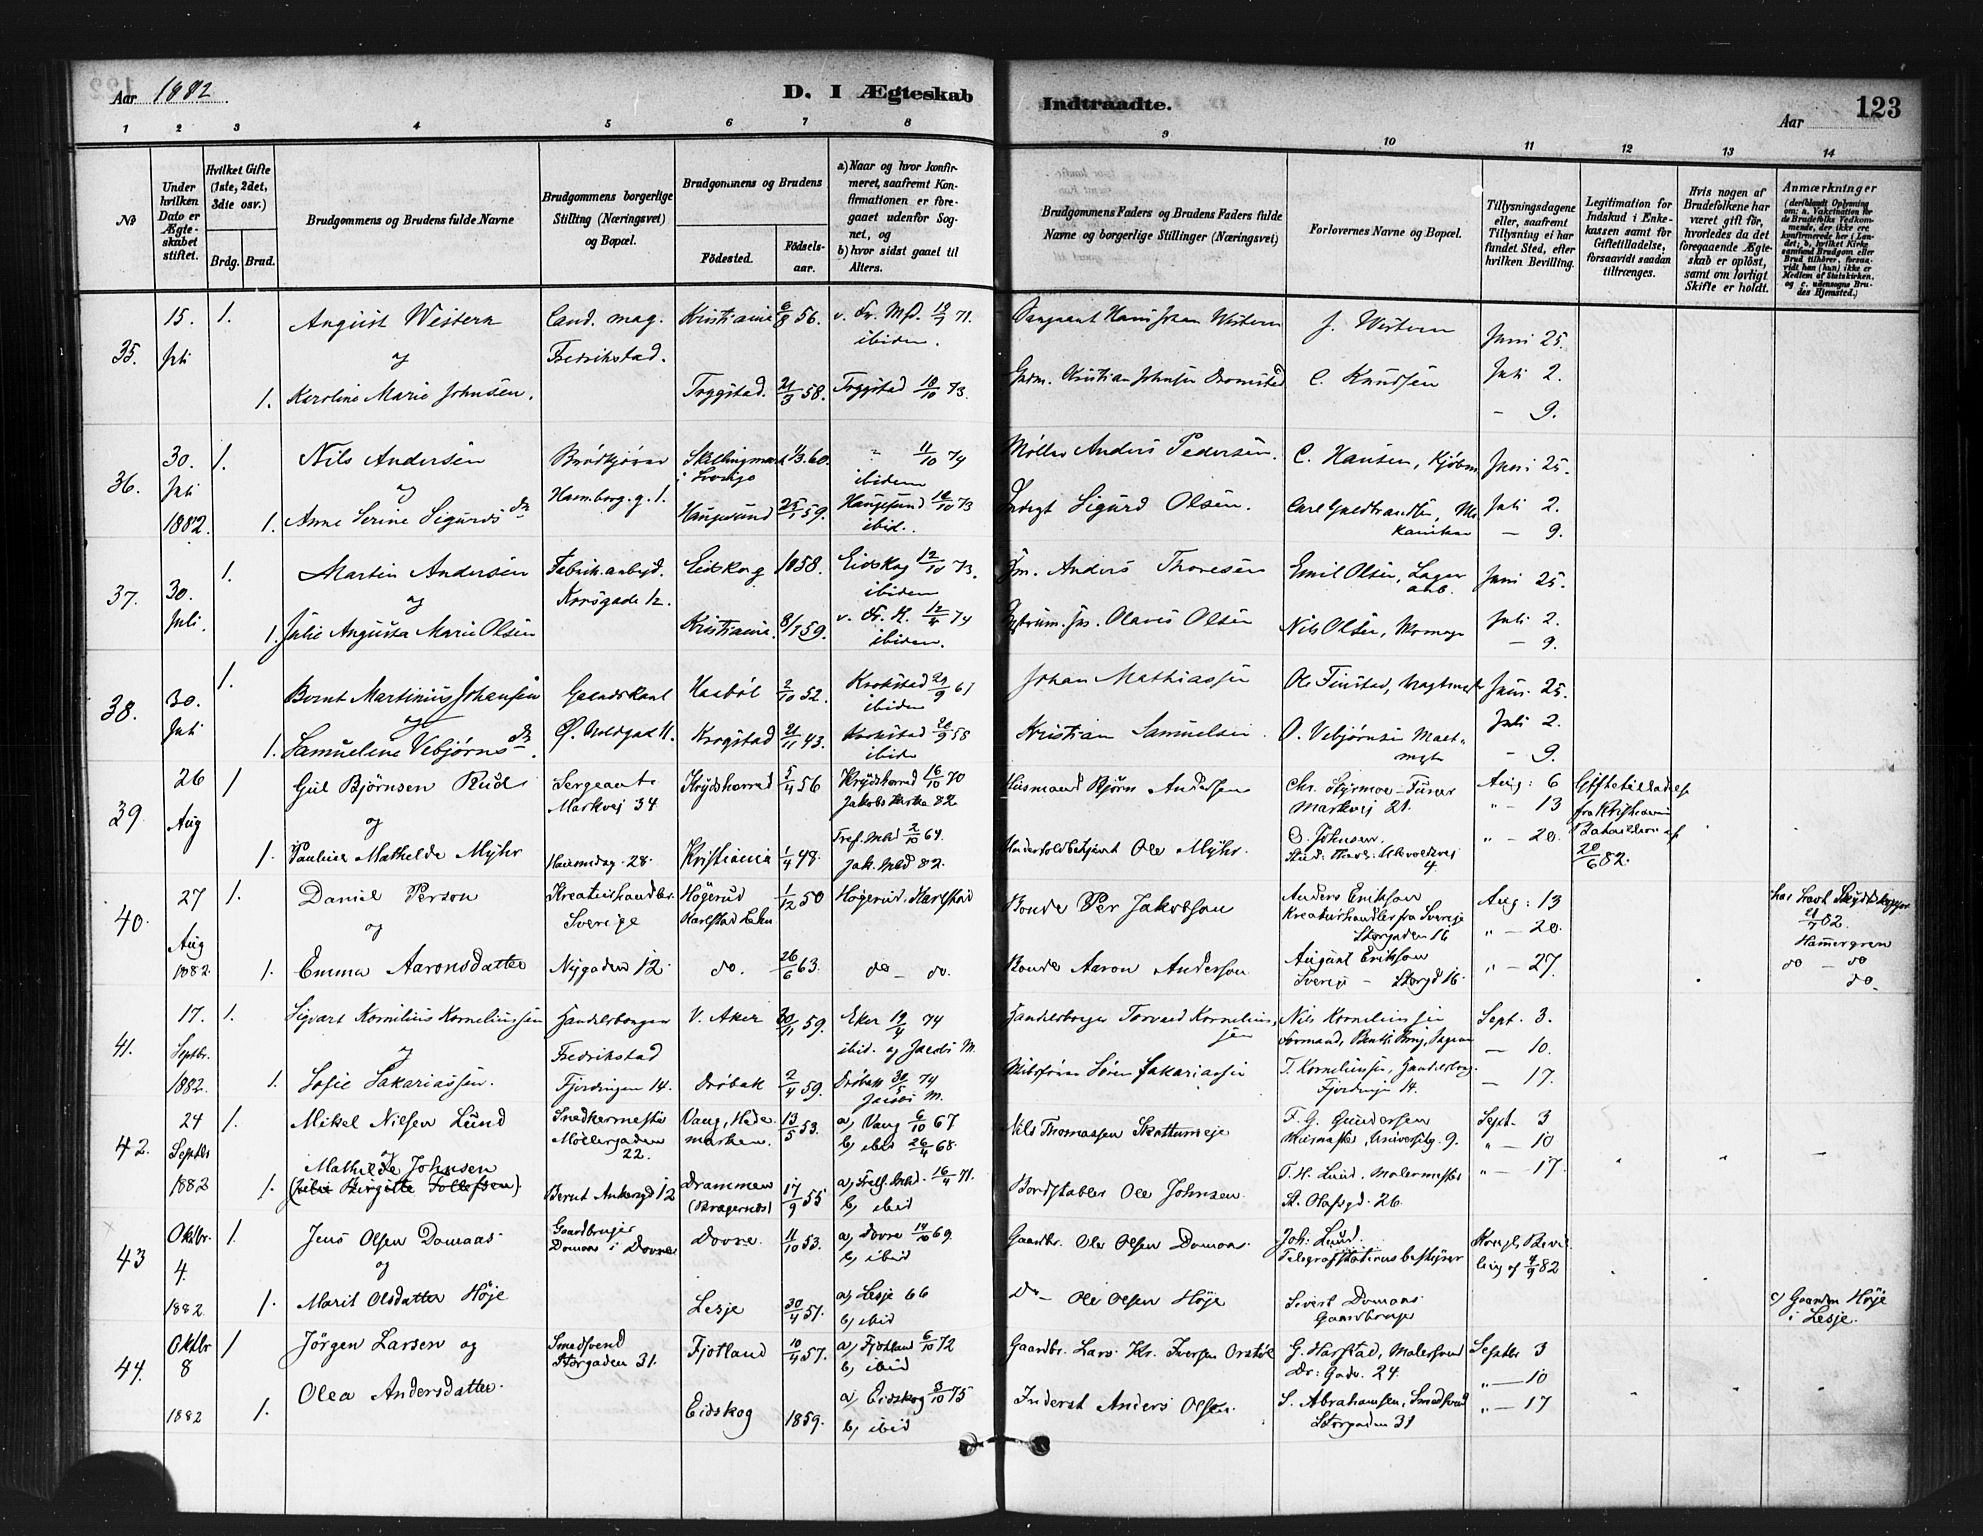 Aar 1882
D. I Ægteskab
Indtraadte.
Aar
123
1 2 3 4 5 6 7 8 9 10 11 12 13 14
No
Under hvilken Dato er Ægteskabet stiftet.
Hvilket Gifte (1ste, 2det, 3die osv.)
Brdg. Brud.
Brudgommens og Brudens fulde Navne
Brudgommens borgerlige Stilling (Næringsvei) og Bopæl.
Brudgommens og Brudens
Födested.
Födselsaar.
a) Naar og hvor konfirmeret, saafremt Konfirmationen er foregaaet udenfor Sognet, og
b) hvor sidst gaaet til Alters.
Brudgommens Faders og Brudens Faders fulde Navne og borgerlige Stillinger (Næringsvei)
Forlovernes Navne og Bopæl.
Tillysningsdagene eller, saafremt Tillysning ei har fundet Sted, efter hvilken Bevilling.
Legitimation for Indskud i Enkekassen samt for Giftetilladelse, forsaavidt saadan tiltrænges.
Hvis nogen af Brudefolkene har været gift för, hvorledes da det foregaaende Ægteskab er oplöst, samt om lovligt Skifte er holdt.
Anmærkninger
(deriblandt Oplysning om: a. Vakcination for de Brudefolks Vedkommende, der ikke ere konfirmerede her i Landet; b. hvilket Kirkesamfund Brudgom eller Brud tilhörer, forsaavidt han (hun) ikke er Medlem af Statskirken, og c. udensogns Brudes Hjemsted.)
35. 15. Juli 1. August Western Cand. mag. Fredrikstad. Kristiania 6/8 56. v. Fr. Mst. 71. ibidem. Hans Johan Western J. Western Juni 25.
og
1. Karoline Marie Johnsen. Trygstad. 21/3 58. Trygstad 73. Kristian Johnsen C. Knudsen Juli 2.
— 9.
36. 30. Juli 1882. 1. Nils Andersen Hamborg. g. 1. Skillingmark i Sverige 60. 11/10 74 ibidem Møller Anders Pedersen. C. Hansen, Kjøbm. Juni 25.
og
1. Anne Serine Sigurdsdtr Haugesund 25/1 59. Haugesund 73 ibid. Sigurd Olsen. Juli 2.
— 9.
37. 30. Juli. 1. Martin Andersen Fabrikarbejd. Korsgade 12. Eidskog 1858. Eidskog 12/10 73. ibidem Gm. Anders Thoresen Emil Olsen, Lager arb. Juni 25.
og
1. Julie Augusta Marie Olsen Kristiania. 8/1 59. v. Fr. K. 12/4 74 ibidem. Olaves Olsen Nils Olsen, Juli 2.
— 9.
38. 30. Juli 1. Bernt Martinius Johansen Haabøl 2/10 52. Krokstad 67 ibidem Johan Mathiassen Ole Finstad, Juni 25.
og
1. Samueline Vebjørnsdtr. Krogstad 21/11 43. Krokstad 58 ibidem Kristian Samuelsen O. Vebjørnsen Juli 2.
— 9.
39. 26 Aug 1 Gul Bjørnsen Rud Sergeant Markvej 34 Krydsherred 5/4 56 Krydsherred 16/10 70 Jakobs Kirke 82 Husmand Bjørn Andersen Chr. Styrmoe – Markvej 21. Aug: 6 Giftetilladelse fra Kristiania Bataillon af 20/6 82.
og " — 13
1. Pauline Mathilde Myhr Hausmdsg. 28. Kristiania 1/4 48. Tref. Mkd 2/10 64. Jak. Mkd 82. Underfoldbetjent Ole Myhr. O. Johnsen. " — 20.
40. 27 Aug 1882. 1. Daniel Person Kreaturhandler. Sverige Högerud Karlstad Lehn 1/12 50 Högerud, Karlstad Bonde Per Jakobson Anders Erikson Kreaturhandler fra Sverige Storgaden 16 Aug: 13 82. Hammergren
og " — 20.
1. Emma Aaronsdatter Nygaden 12. do. 26/6 63. do — do. Bonde Aaron Anderson August Erikson Sverige — Storgd 16. " — 27. do — do do.
41. 17. Septbr. 1882. 1. Sigvart Kornelius Korneliussen Handelsborger Fredrikstad V. Aker 59. Eker 19/4 74 ibid. og Jacobs M. Handelsborger Torvald Korneliussen Nils Korneliussen Formand, Sept. 3.
og — 10.
1. Sofie Sakariassen. Fjerdingen 14. Drøbak 2/4 59. Drøbak 30/5 74 Jacobs M. Søren Sakariassen T. Korneliussen, Handelsborg. Fjerdingen 14. — 17.
42. 24 Septbr 1882 1. Mikel Nilsen Lund Snedkermester Möllergaden 22. Vang, Hedemarken. 13/5 53. a, Vang 6/10 67 b, ibid 26/4 68. Nils Thomassen Skattumeje F. G. Gundersen Murmester, Universitg. 9. Sept. 3
og " — 10
1. Mathilde Johnsen (Julie Birgitte Tollefsen) Bernt Ankersgd 12 Drammen (Bragernæs) 17/9 55 a, Trefs. Mkd. 16/4 71. b, ibid Bordstabler Ole Johnsen. T. H. Lund. Malermester St. Olafsgd. 26. " — 17.
43 Oktbr. 4. 1882 1. Jens Olsen Domaas Gaardbruger Domaas i Dovre Dovre. 11/10 53. a, Dovre 14/10 69. b, ibid Gaardbr. Ole Olsen Domaas. Joh. Lund. Telegrafstationsbestyrer Kongl. Bevilling af 4/9 82
og
1. Marit Olsdatter Höje Lesje 30/4 51. a, Lesje 66 b, ibid Do — Ole Olsen Höje Sivert Domaas Gaardbruger c, Gaarden Höje i Lesje.
44. Oktbr 8 1882 1 Jörgen Larsen og Smedsvend Storgaden 31. Fjotland 10/4 57. a, Fjotland 6/10 72 b, ibid Gaardbr. Lars Kr. Iversen G. Harstad, Malersvend Dr: Gade. 24. Septbr 3
" — 10
1. Olea Andersdatter. Eidskog 1859. a, Eidskog 3/10 75 b, ibid Inderst Anders Olsen. S. Abrahamsen, Smedsvend Storgaden 31 " — 17